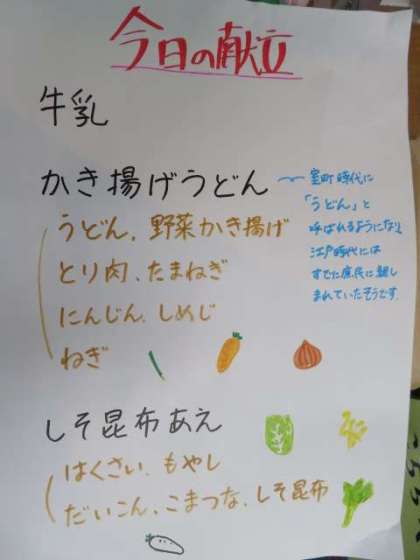 今日の献立
牛乳
かき揚げうどん
室町時代に
「うどん」と
呼ばれるようになり、
江戸時代には
すでに庶民に親し
まれていたそうです。
うどん、野菜かき揚げ
とり肉、たまねぎ
にんじん、しめじ
ねぎ
しそ昆布あえ
はくさい、もやし
だいこん、こまつな、しそ昆布